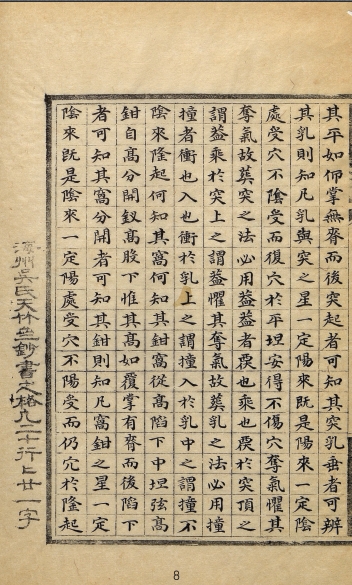 其平如仰掌無脊而後突起者可知其突乳垂者可辨
其乳則知凡乳與突之星一定陽來既是陽來一定陰
處受穴不陰受而復穴於平坦安得不傷穴奪氣惧其
奪氣故葬突之法必用葢葢者覆也乘於突頂之
謂葢乘於突上之謂葢惧其奪氣故葬乳之法必用撞
撞者衝也入也衝於乳上之謂撞入於乳中之謂撞不
陰來隆起何知其窩何知其鉗窩從高陷下中坦弦高
鉗自高分開釵高股下惟其高如覆掌有脊而後陷下
者可知其窩分開者可知其鉗則知凡窩鉗之星一定
陰來既是陰來一定陽處受穴不陽受而仍穴於隆起
州吳氏天休鈔書之格九二十行上廿一字
8